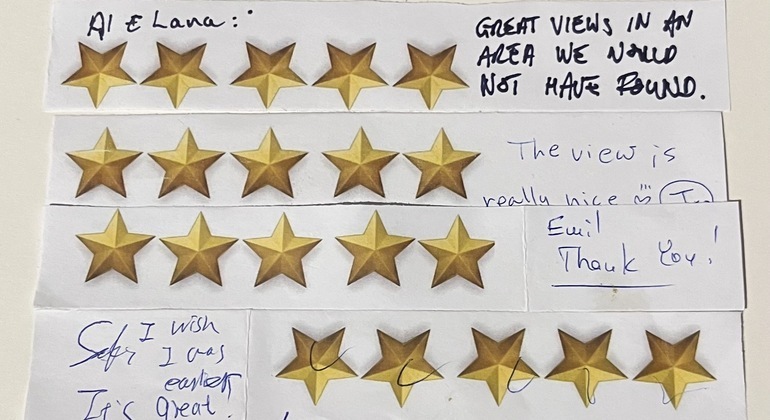 Al & Lana:
GREAT VIEWS IN AN
AREA WE WOULD
NOT HAVE FOUND.
The view is
really nice
Emil
Thank You!
I wish
I was
earlier
It's great.